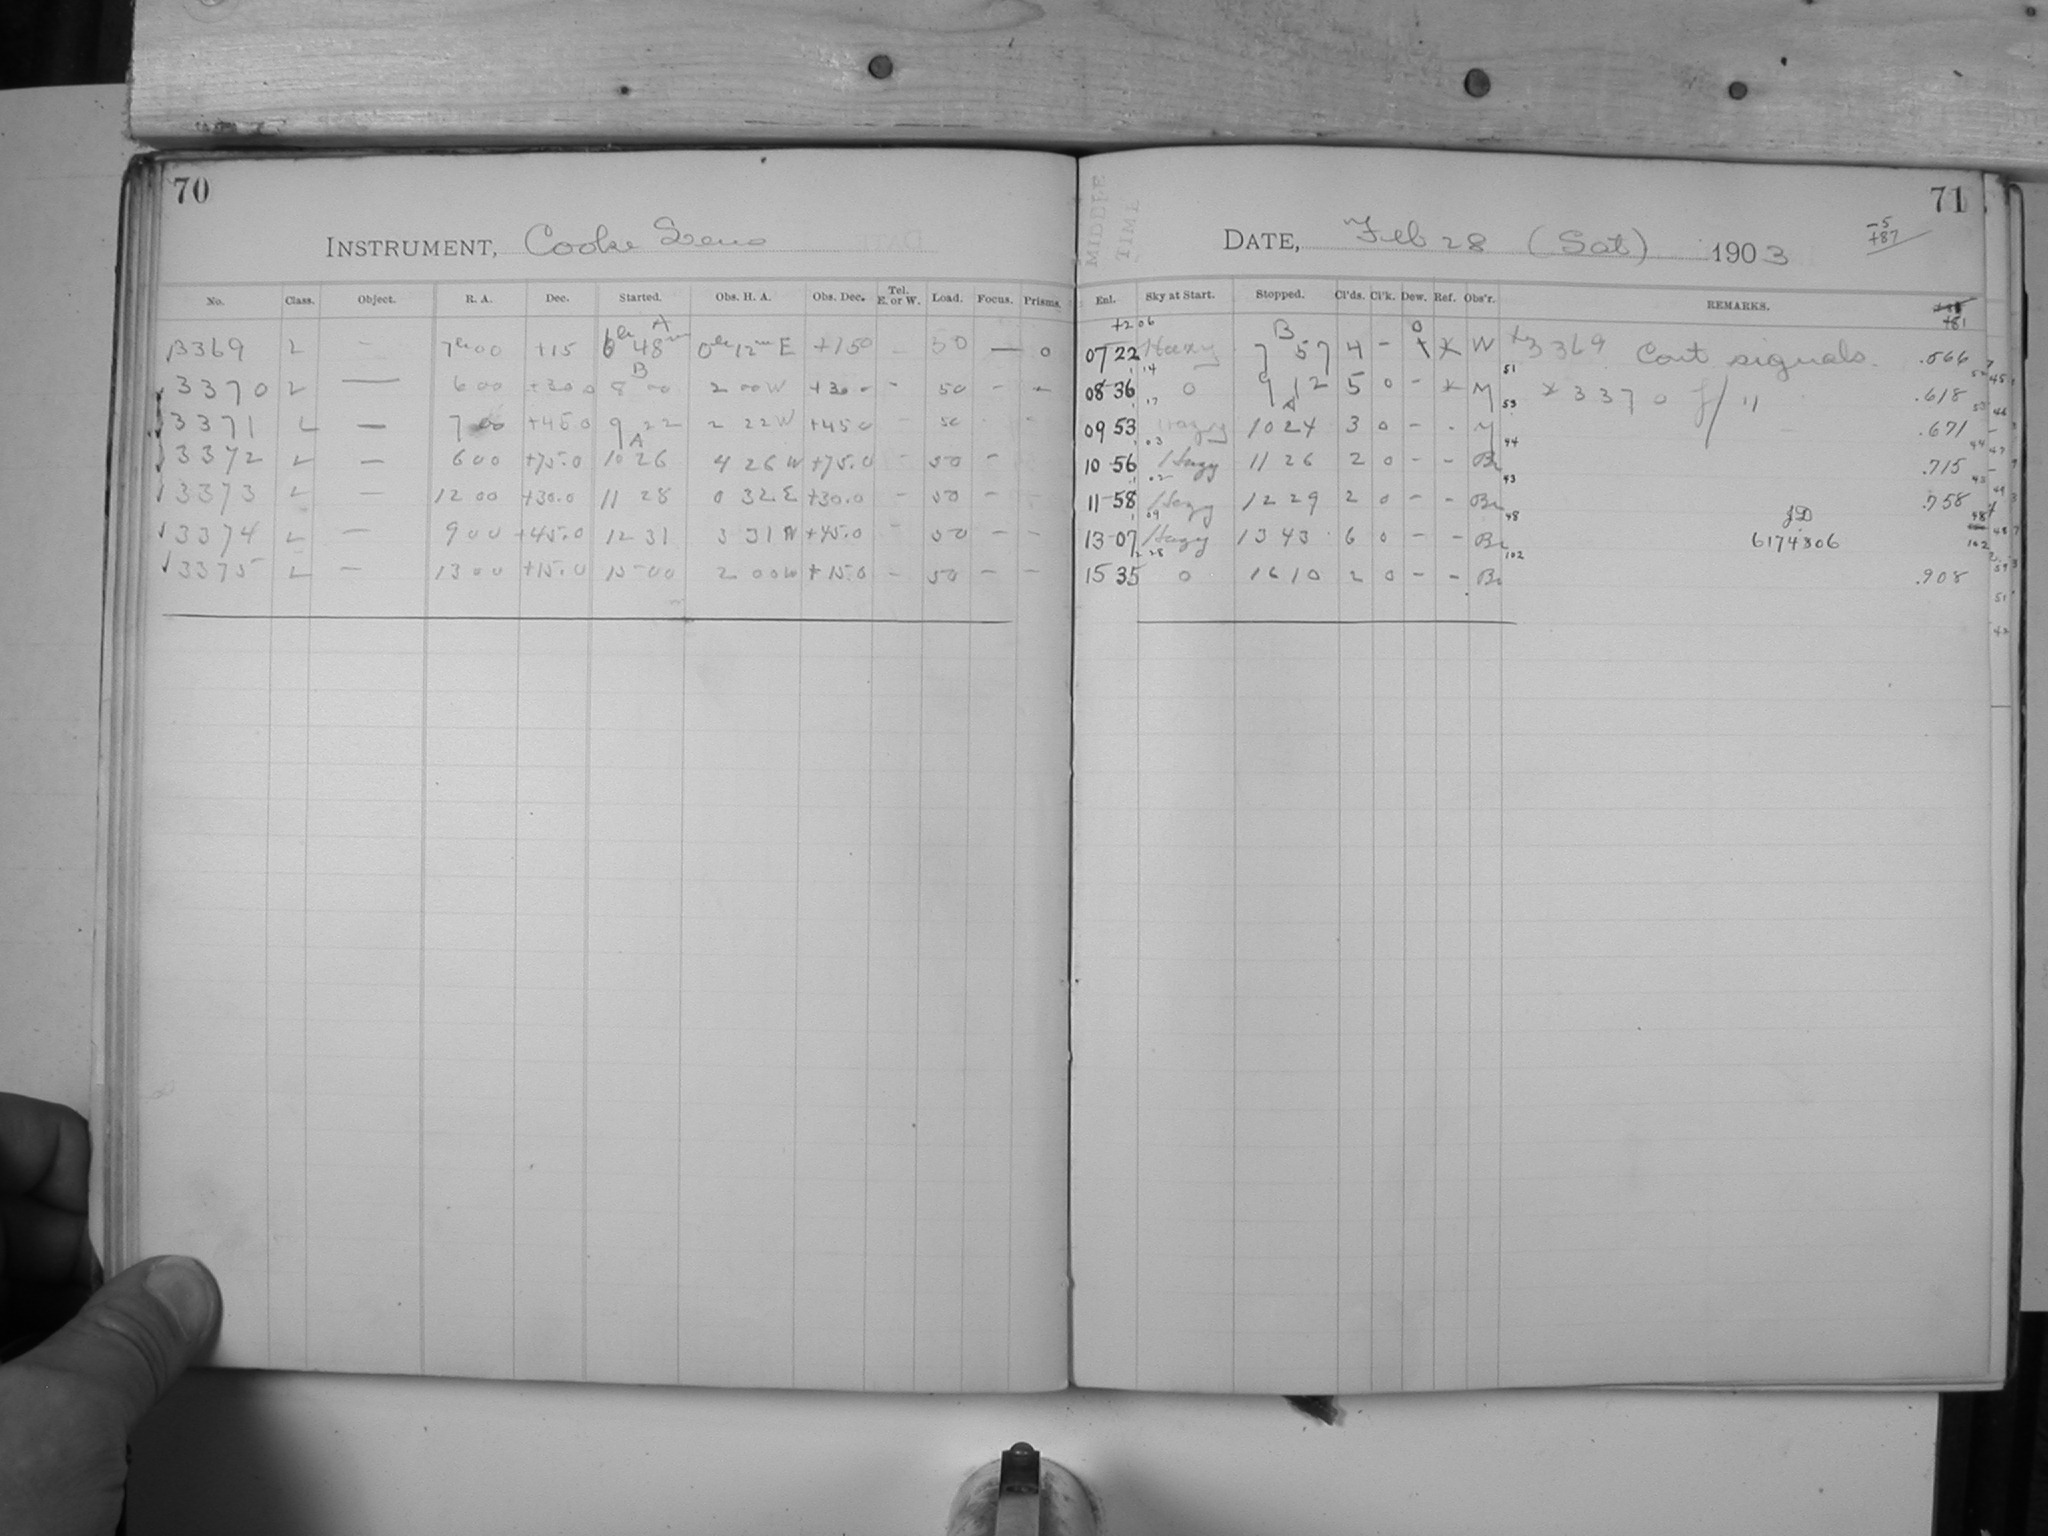 70
INSTRUMENT, Cooke Lens
No. Class. Object. R. A. Dec. Started. Obs. H. A. Obs. Dec. Tel. E. or W. Load. Focus. Prisms.
A
3369 L – 7h 00 +15 6h 48m 0h 12m E +150 – 50 — 0
B
3370 L — 6 00 +30 0 8 00 2 00 W +30 0 – 50 – –
3371 L — 7 00 +45 0 9 22 2 22 W +45 0 – 50 - -
A
3372 L — 6 00 +75.0 10 26 4 26 W +75.0 – 50 –
3373 L — 12 00 +30.0 11 28 0 32 E +30.0 – 50 –
3374 L — 9 00 +45.0 12 31 3 31 W +45.0 50 – –
3375 L — 13 00 +15.0 15 00 2 00 W +15.0 – 50 – –
71
MIDDLE TIME
DATE, Feb 28 (Sat) 1903
-5
+87
Enl. Sky at Start. Stopped. Cl'ds. Cl'k. Dew. Ref. Obs'r. REMARKS.
+81
+2 06 B 0
07 22 Hazy 7 57 4 – * W *3369 Cont signals. .566
1 14 51
08 36 0 9 12 5 0 – * M *3370 f/ " .618
1 17 A 53
09 53 Hazy 10 24 3 0 – - M .671
1 03 44
10 56 Hazy 11 26 2 0 – – Br .715
1 02 43
11 58 Hazy 12 29 2 0 – – Br .758
1 09 48 JD
13 07 Hazy 13 43 6 0 – – Br 6174806
2 28 102
15 35 0 16 10 2 0 – – Br .908